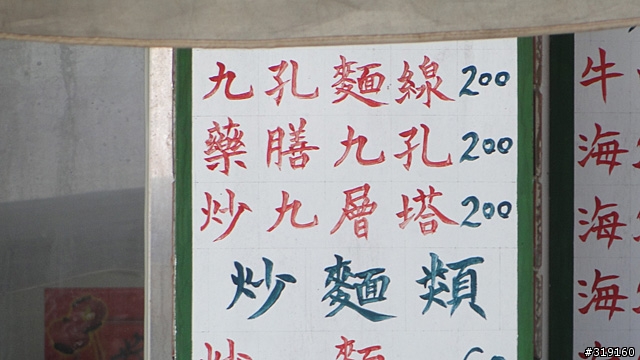 九孔麵線200
藥膳九孔200
炒九層塔200
炒麵類
炒麵
牛
海
海
海
#319160